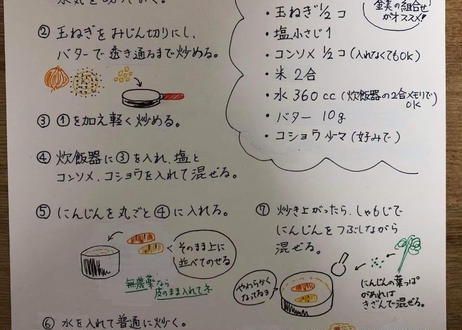 水気を切っておく。
② 玉ねぎをみじん切りにし、
バターで透き通るまで炒める。
③ ①を加え軽く炒める。
④ 炊飯器に③を入れ、塩と
コンソメ、コショウを入れて混ぜる。
⑤ にんじんを丸ごと④に入れる。
そのまま上に
並べてのせる
無農薬なら
皮のまま入れてネ
⑥ 水を入れて普通に炊く。
の組合せ
がオススメ!
・玉ねぎ 1/2 コ
・塩 小さじ1
・コンソメ 1/2 コ (入れなくてもOK)
・米 2合
・水 360cc (炊飯器の2合メモリで
OK
・バター 10g
・コショウ 少々 (好みで)
⑦ 炊き上がったら、しゃもじで
にんじんをつぶしながら
混ぜる。
やわらかく
なってるョ
にんじんの葉っぱ
があれば
きざんで混ぜる。